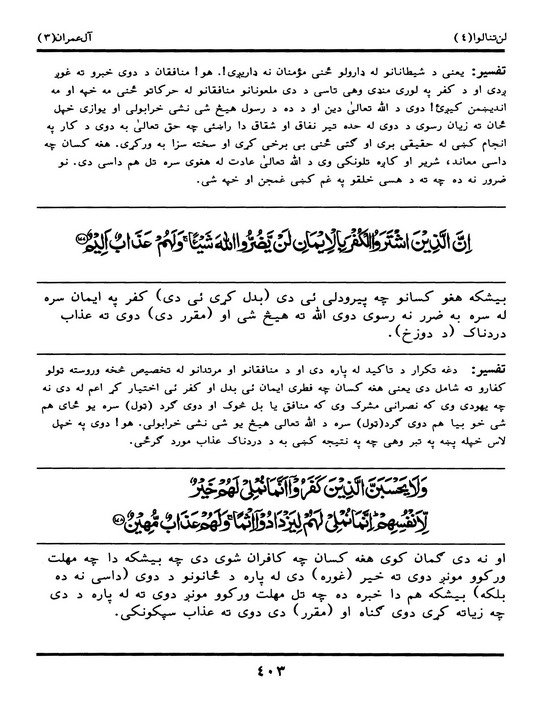 لن تنالوا (٤) آل عمران (٣)
تفسير: يعنى د شيطانانو له دارولو ځنى مؤمنان نه داريږى!. هو! منافقان د دوى خبرو ته غوږ
ږدى او د كفر په لورى منډى وهى تاسى د دى ملعونانو منافقانو له حركاتو ځنى مه خپه او مه
انديښمن كيږئ! دوى د الله تعالىٰ دين او د ده د رسول هيڅ شى نشى خرابولى او يوازى خپل
ځان ته زيان رسوى د دوى له حده تير نفاق او شقاق دا راښئى چه حق تعالىٰ به دوى د كار په
انجام كښى له حقيقى برى او ګټى ځنى بى برخى كړى او سخته سزا به وركړى. هغه كسان چه
داسى معاند، شرير او كاږه تلونكى وى د الله تعالىٰ عادت له هغوى سره تل هم داسى دى. نو
ضرور نه ده چه ته د هسى خلقو په غم كښى غمجن او خپه شى.
اِنَّ الَّذِيْنَ اشْتَرَوُا الْكُفْرَ بِالْاِيْمَانِ لَنْ يَّضُرُّوا اللهَ شَيْـًٔا ۚ وَلَهُمْ عَذَابٌ اَلِيْمٌ ﴿۱۷۷﴾
بيشكه هغو كسانو چه پيرودلى ئى دى (بدل كړى ئى دى) كفر په ايمان سره
له سره به ضرر نه رسوى دوى الله ته هيڅ شى او (مقرر دى) دوى ته عذاب
دردناك (د دوزخ).
تفسير: دغه تكرار د تاكيد له پاره دى او د منافقانو او مرتدانو له تخصيص څخه وروسته ټولو
كفارو ته شامل دى يعنى هغه كسان چه فطرى ايمان ئى بدل او كفر ئى اختيار كړ اعم له دى نه
چه يهودى وى كه نصرانى مشرك وى كه منافق يا بل څوك او دوى ګرد (ټول) سره يو ځاى هم
شى خو بيا هم دوى ګرد(ټول) سره د الله تعالى هيڅ يو شى نشى خرابولى. هو! دوى په خپل
لاس خپله پښه په تبر وهى چه په نتيجه كښى به د دردناك عذاب مورد ګرځى.
وَلَا يَحْسَبَنَّ الَّذِيْنَ كَفَرُوْٓا اَنَّمَا نُمْلِىْ لَهُمْ خَيْرٌ
لِّاَنْفُسِهِمْ ؕ اِنَّمَا نُمْلِىْ لَهُمْ لِيَزْدَادُوْٓا اِثْمًا ۚ وَلَهُمْ عَذَابٌ مُّهِيْنٌ ﴿۱۷۸﴾
او نه دى ګمان كوى هغه كسان چه كافران شوى دى چه بيشكه دا چه مهلت
وركوو مونږ دوى ته خير (غوره) دى له پاره د ځانونو د دوى (داسى نه ده
بلكه) بيشكه هم دا خبره ده چه تل مهلت وركوو مونږ دوى ته له پاره د دى
چه زياته كړى دوى ګناه او (مقرر) دى دوى ته عذاب سپكونكى.
٤٠٣